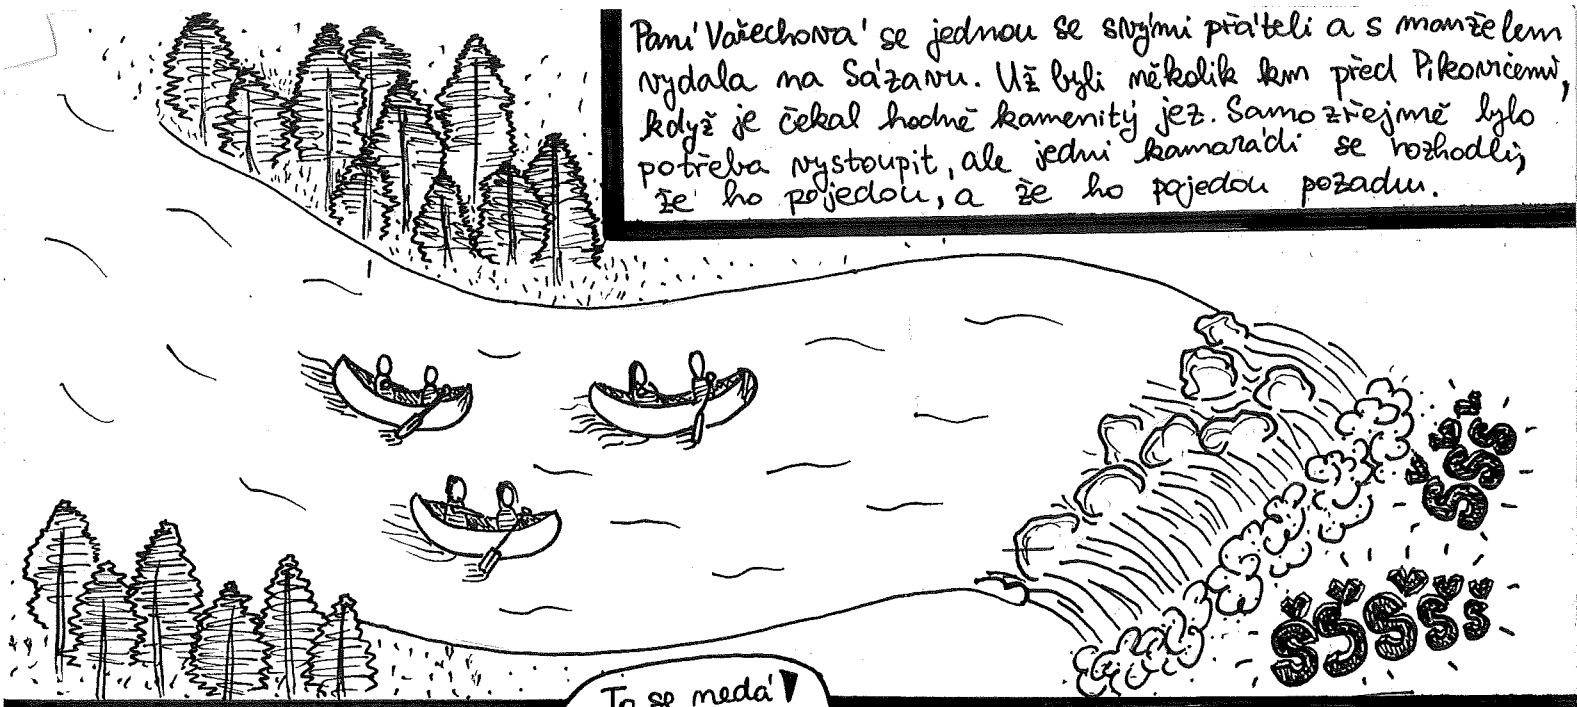 Paní Vařechová se jednou se svými přáteli a s manželem
vydala na Sázavu. Už byli několik km před Pikovicemi,
když je čekal hodně kamenitý jez. Samozřejmě bylo
potřeba vystoupit, ale jedni kamarádi se rozhodli,
že ho pojedou, a že ho pojedou pozadu.
ŠŠŠŠ
ŠŠŠŠŠ
To se nedá!